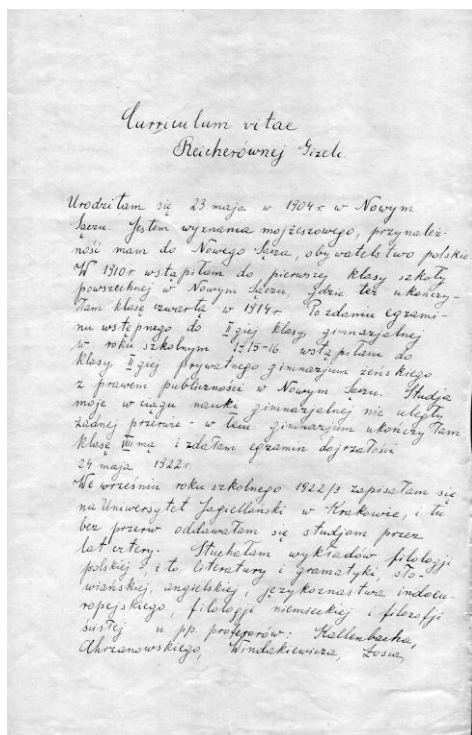 Curriculum vitae
Reicherównej Gizeli
Urodziłam się 23 maja w 1904 r w Nowym
Sączu. Jestem wyznania mojżeszowego, przynależ-
ność mam do Nowego Sącza, obywatelstwo polskie
W 1910 r. wstąpiłam do pierwszej klasy szkoły
powszechnej w Nowym Sączu, gdzie też ukończy-
łam klasę czwartą w 1914 r. Po zdaniu egzami-
nu wstępnego do II giej klasy gimnazjalnej
w roku szkolnym 1915-16 wstąpiłam do
klasy II giej prywatnego gimnazjum żeńskiego
z prawem publiczności w Nowym Sączu. Studja
moje w ciągu nauki gimnazjalnej nie uległy
żadnej przerwie - w tem gimnazjum ukończyłam
klasę VIII mą i zdałam egzamin dojrzałości
24 maja 1922 r.
We wrześniu roku szkolnego 1922/3 zapisałam się
na Uniwersytet Jagielloński w Krakowie, i tu
bez przerw oddawałam się studjom przez
lat cztery. Słuchałam wykładów filologji
polskiej i to literatury i gramatyki, sło-
wiańskiej, angielskiej, językoznastwa indoeu-
ropejskiego, filologji niemieckiej i filozofji
ścisłej u pp. profesorów: Kallenbacha,
Chrzanowskiego, Windakiewicza, Łosia,